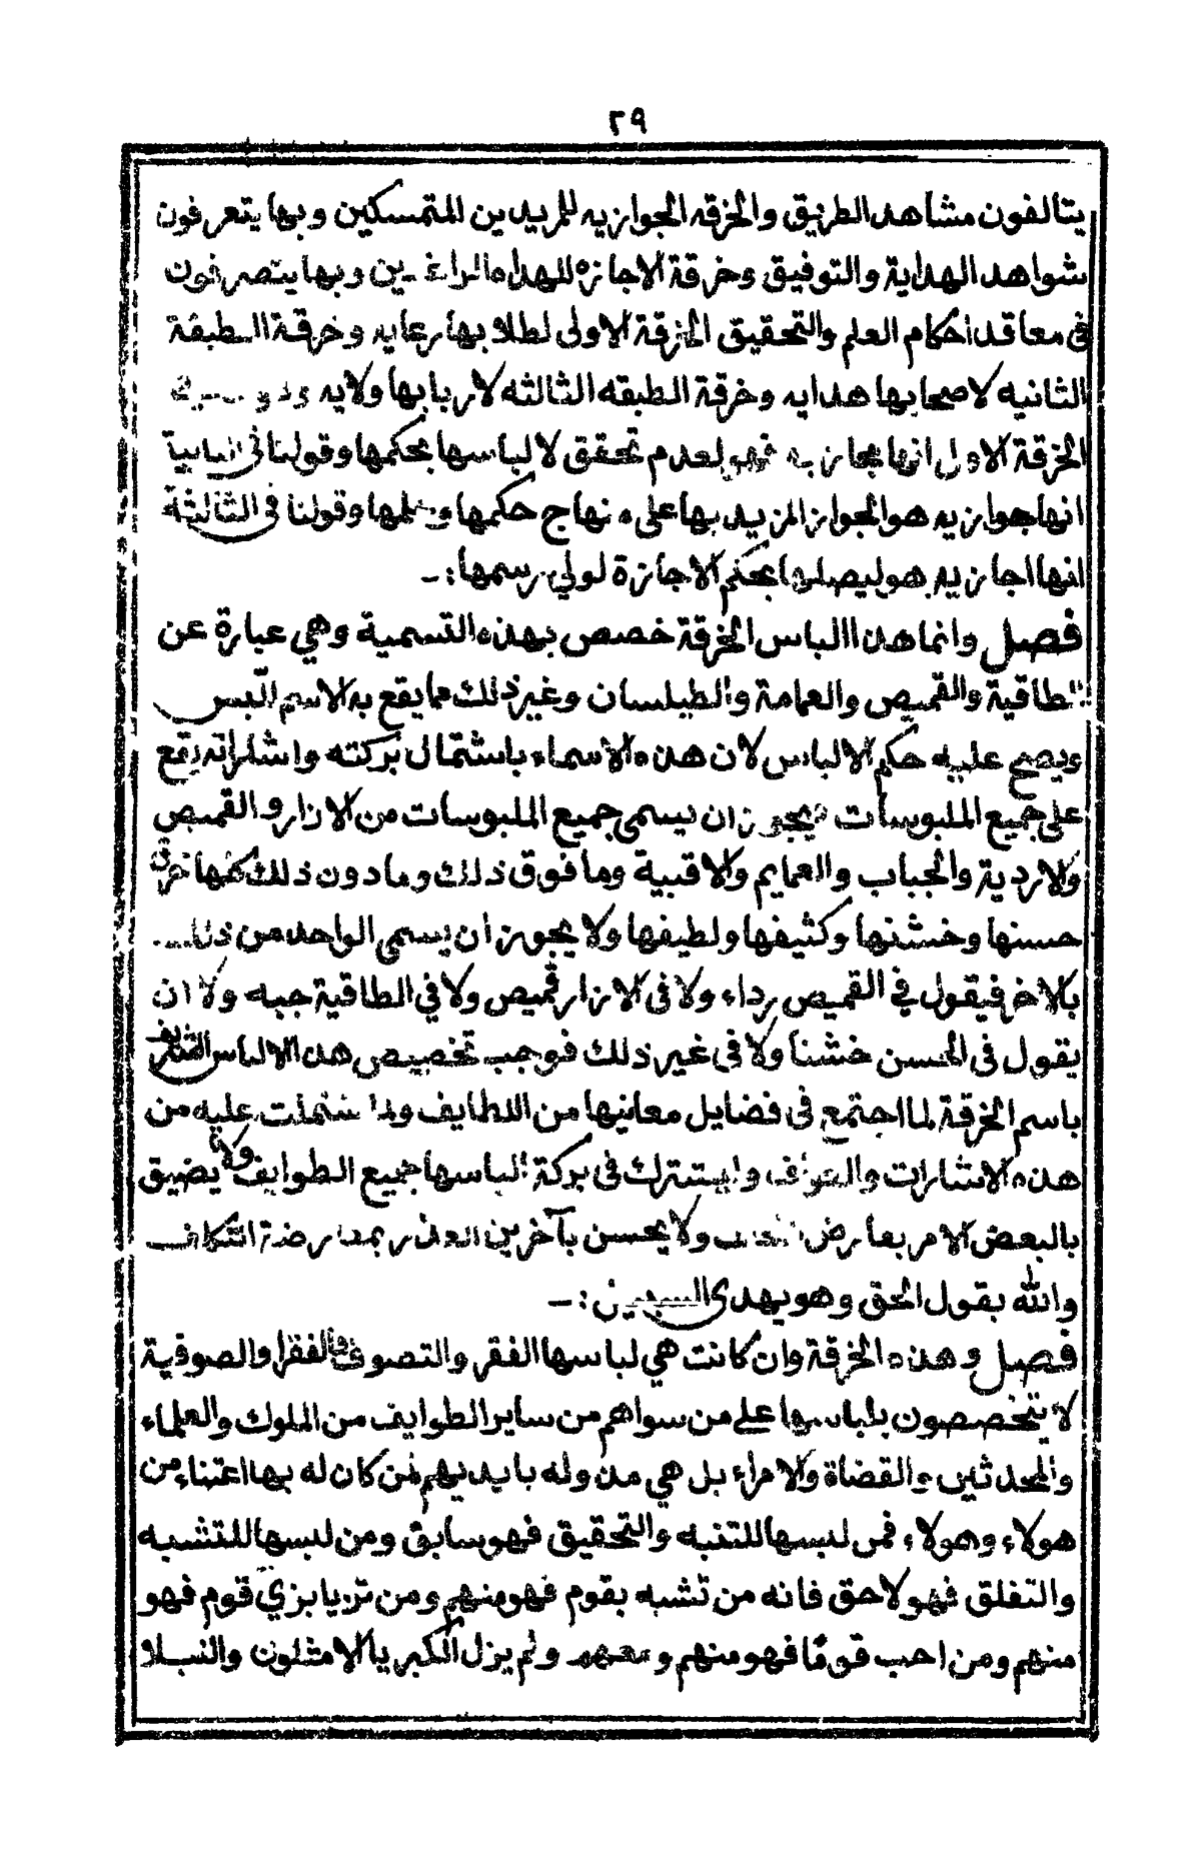 ٢٩
يتالفون مشاهد الطريق والخرقه الجوازيه للمريدين المتمسكين وبها يتعرفون
شواهد الهداية والتوفيق وخرقة الاجازه للهداه الراغبين وبها يتصرفون
في معاقد احكام العلم والتحقيق الخرقة الاولى لطلابها رعايه وخرقة الطبقة
الثانيه لاصحابها هدايه وخرقة الطبقه الثالثه لاربابها ولايه
الخرقة الاولى انها مجازيه فهو لعدم تحقق لالباسها بحكمها وقولنا في الثانية
انها جوازيه هو الجواز المزيد بها على نهاج حكمها وقولنا في الثالثة
انها اجازيه هو ليصلها بحكم الاجازة لولي رسمها :ـ
فصل وانما هذا الباس الخرقة خصص بهذه التسمية وهي عبارة عن
الطاقية والقميص والعمامة والطيلسان وغير ذلك مما يقع به الاسم اللبس
ويصح عليه حكم الالباس لان هذه الاسماء باشتمال بركته واشاراته يقع
على جميع الملبوسات فيجوز ان يسمى جميع الملبوسات من الازار والقميص
والاردية والجباب والعمايم والاقبية وما فوق ذلك وما دون ذلك كلها خرق
حسنها وخشنها وكثيفها ولطيفها ولا يجوز ان يسمى الواحد من ذلك
بالاخر فيقول في القميص رداء ولا في الازار قميص ولا في الطاقية جبه ولا ان
يقول في الحسن خشنا ولا في غير ذلك فوجب تخصيص هذا الالباس الشريف
باسم الخرقة لما اجتمع في فضايل معانيها من اللطايف ولما اشتملت عليه من
هذه الاشارات والعوارف وايشترك في بركة الباسها جميع الطوايف ولا يضيق
بالبعض الامر بعارض ولا يحسن بآخرين العذر بمعارضة التكاف
والله يقول الحق وهو يهدى السبيل :ـ
فصل وهذه الخرقة وان كانت هي لباسها الفقر والتصوف فالفقرا والصوفية
لا يتخصصون بلباسها على من سواهم من ساير الطوايف من الملوك والعلماء
والمحدثين والقضاة والامراء بل هي مدوله بايديهم فمن كان له بها اعتناء من
هولاء وهولاء فمن لبسها للتنبه والتحقيق فهو سابق ومن لبسها للتشبه
والتفلق فهو لاحق فانه من تشبه بقوم فهو منهم ومن تزيا بزي قوم فهو
منهم ومن احب قومًا فهو منهم ومعهم ولم يزل الكبريا الامثلون والنبلا